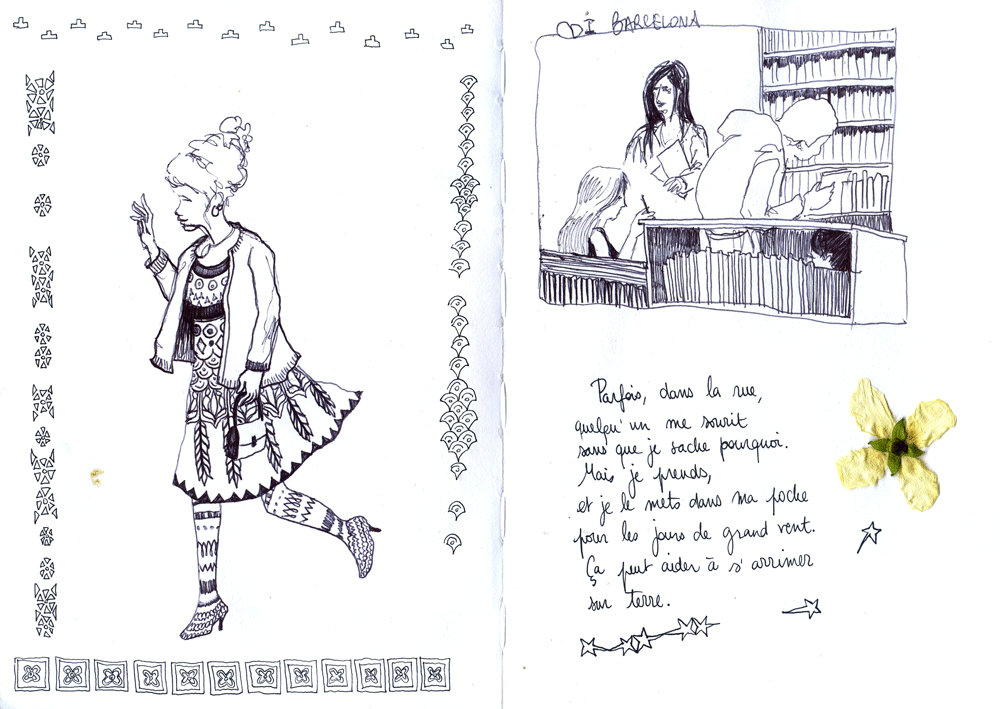 ODI BARCELONA
Parfois, dans la rue,
quelqu'un me sourit
sans que je sache pourquoi.
Mais je prends,
et je le mets dans ma poche
pour les jours de grand vent.
Ça peut aider à s'arrimer
sur terre.